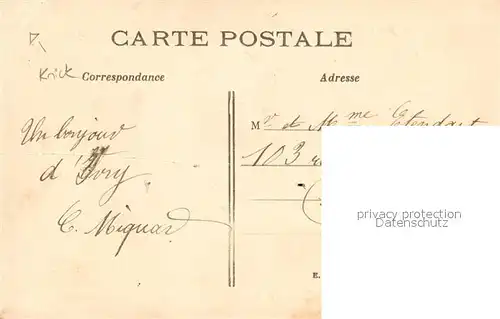 CARTE POSTALE
Krick
Correspondance
Adresse
Un bonjour
d'Ivry
C. Mignard
Mr et Mme Etendart
103
privacy protection
Datenschutz
E.